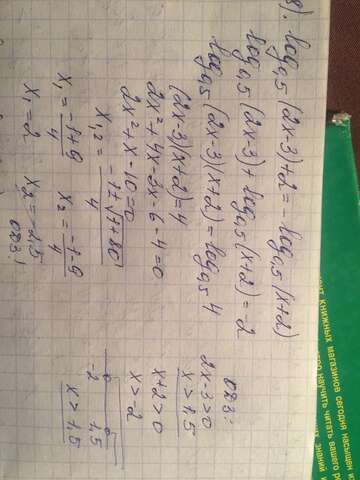 8). log₀,₅(2x-3)+2=-log₀,₅(x+2)
log₀,₅(2x-3)+log₀,₅(x+2)=-2
log₀,₅(2x-3)(x+2)=log₀,₅4
(2x-3)(x+2)=4
2x²+4x-3x-6-4=0
2x²+x-10=0
x₁,₂=(-1±√(1+80))/4
x₁=(-1+9)/4 x₂=(-1-9)/4
x₁=2 x₂=-2,5
ОДЗ!
ОДЗ:
2x-3>0
x>1,5
x+2>0
x>-2
-2 1,5
x>1,5
Книжных магазинов сегодня насыщен
научить читать вашего